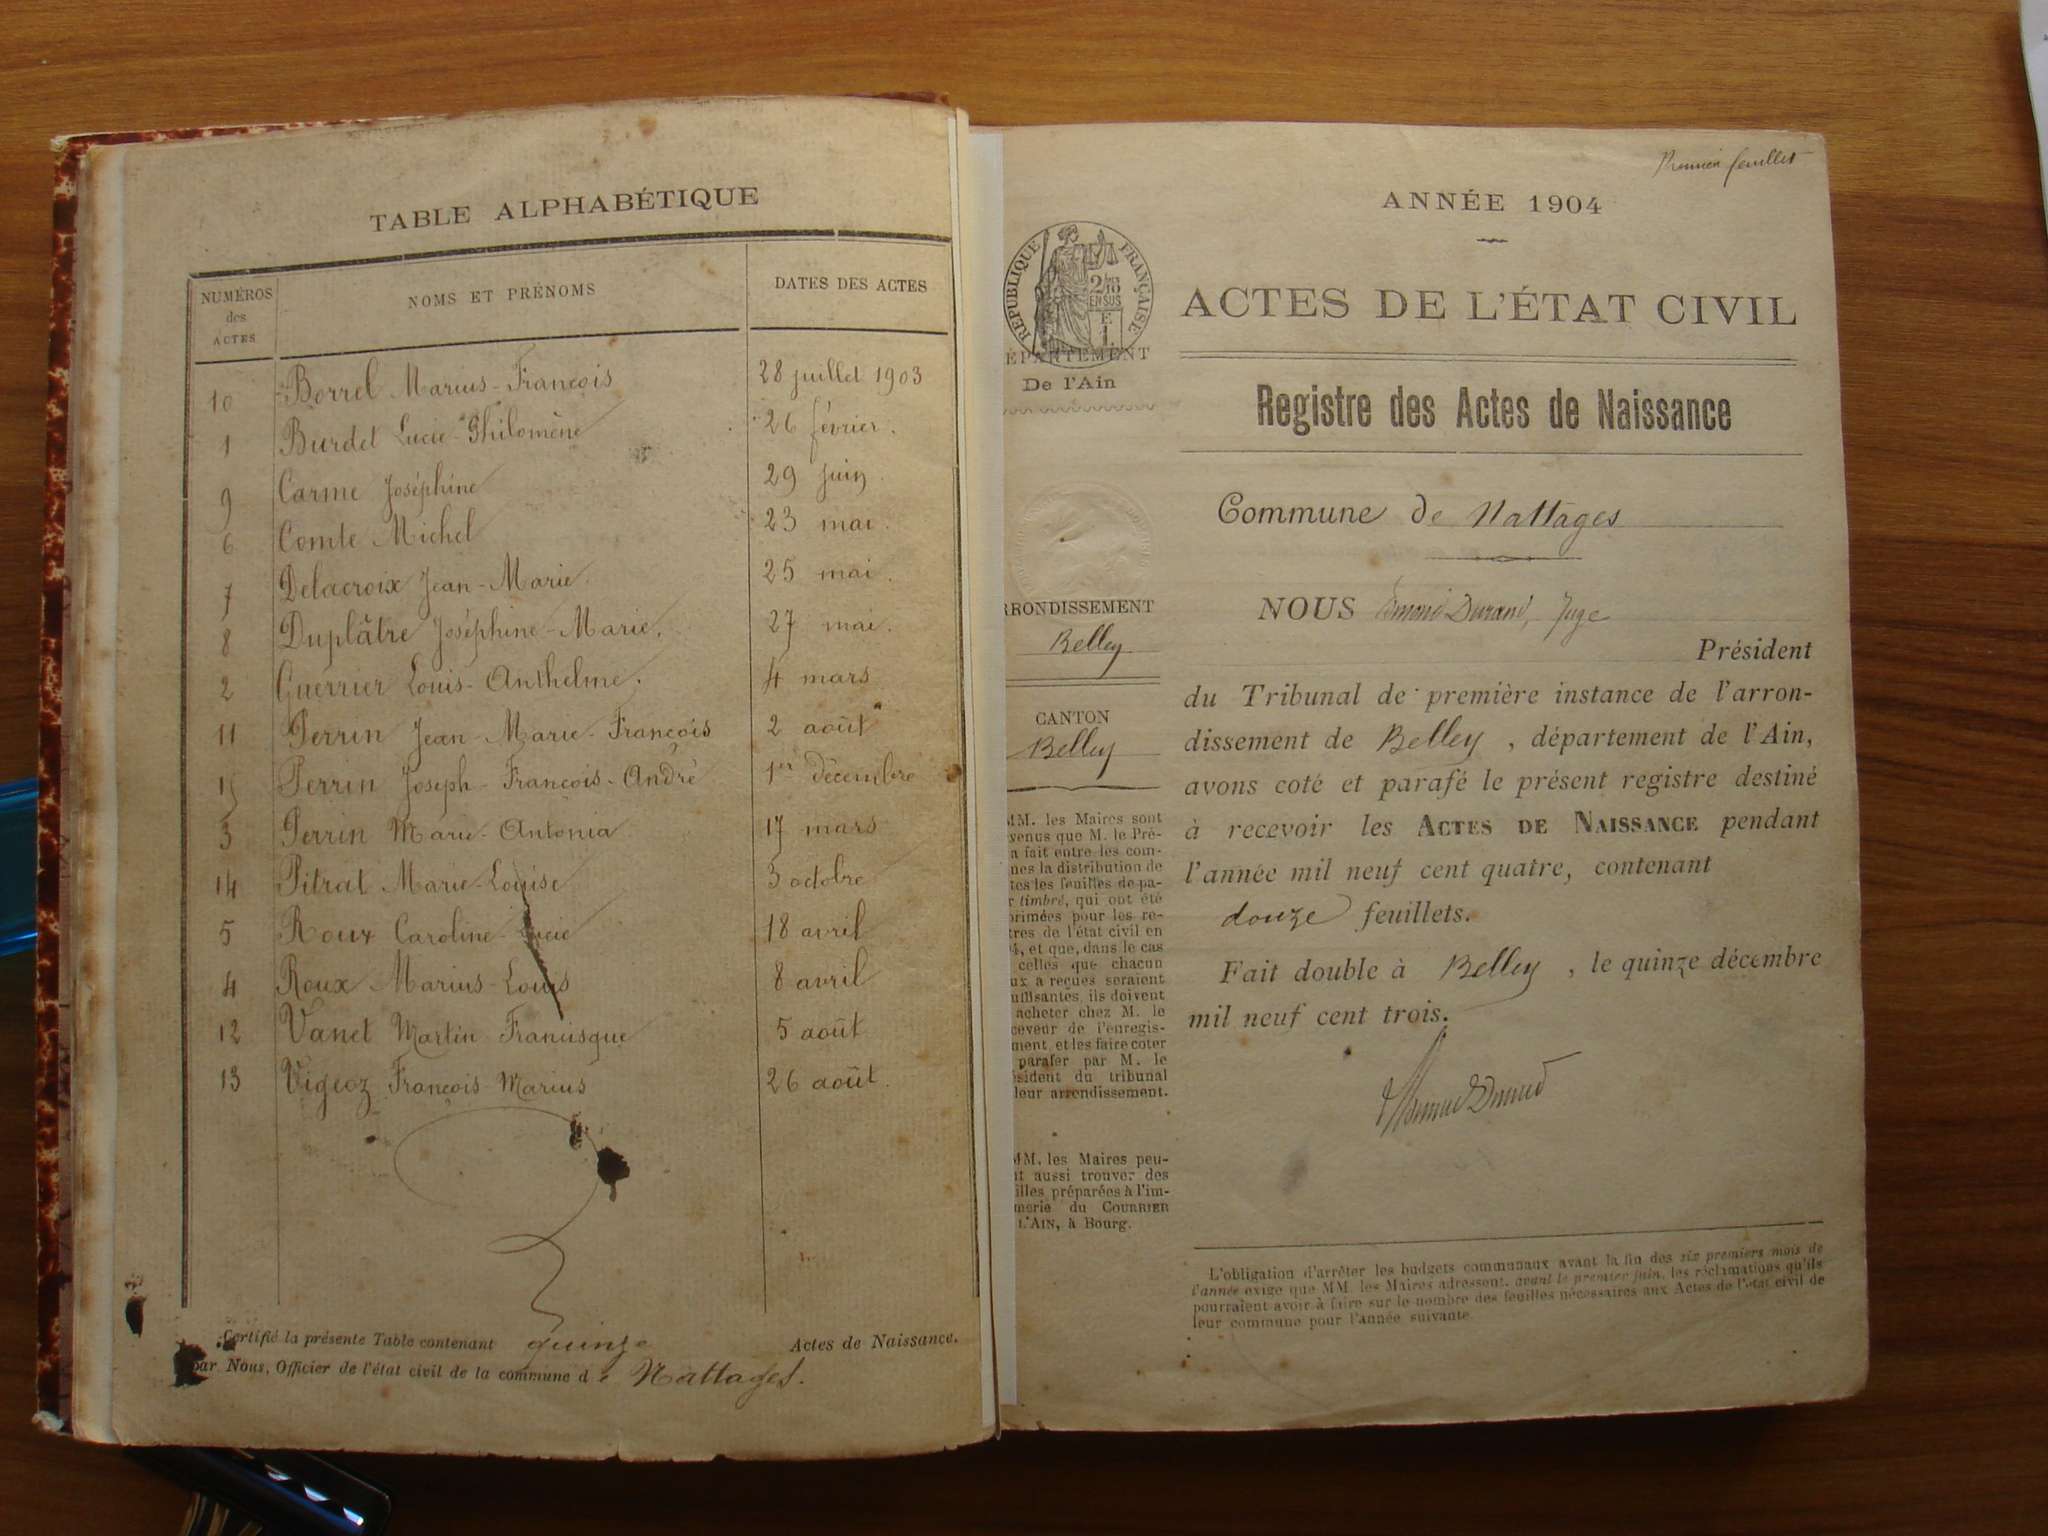 TABLE ALPHABÉTIQUE
NUMÉROS des ACTES NOMS ET PRÉNOMS DATES DES ACTES
10 Borrel Marius-François 28 juillet 1903
1 Burdet Lucie-Philomène 26 février.
9 Carme Joséphine 29 juin
6 Comte Michel 23 mai.
7 Delacroix Jean-Marie. 25 mai.
8 Duplâtre Joséphine-Marie. 27 mai.
2 Guerrier Louis-Anthelme. 4 mars
11 Perrin Jean-Marie-François 2 août
15 Perrin Joseph-François-André 1er décembre
3 Perrin Marie-Antonia 17 mars
14 Pitrat Marie-Louise 3 octobre
5 Roux Caroline-Lucie 18 avril
4 Roux Marius-Louis 8 avril
12 Vanet Martin Francisque 5 août
13 Vigeoz François-Marius 26 août.
Certifié la présente Table contenant quinze Actes de Naissance.
par Nous, Officier de l'état civil de la commune de Nattages.
Premier feuillet
ANNÉE 1904
RÉPUBLIQUE FRANÇAISE
2/10 EN SUS
F 1
ÉPARTEMENT
De l'Ain
RRONDISSEMENT
Belley
CANTON
Belley
MM. les Maires sont
venus que M. le Pré-
a fait entre les com-
nes la distribution de
tes les feuilles de pa-
r timbré, qui ont été
primées pour les re-
tres de l'état civil en
4, et que, dans le cas
celles que chacun
ux a reçues seraient
uffisantes, ils doivent
acheter chez M. le
ceveur de l'enregis-
ment, et les faire coter
parafer par M. le
ésident du tribunal
leur arrondissement.
MM. les Maires peu-
nt aussi trouver des
illes préparées à l'im-
merie du COURRIER
L'AIN, à Bourg.
ACTES DE L'ÉTAT CIVIL
Registre des Actes de Naissance
Commune de Nattages
NOUS Edmond Durand, Juge
Président
du Tribunal de première instance de l'arron-
dissement de Belley, département de l'Ain,
avons coté et parafé le présent registre destiné
à recevoir les ACTES DE NAISSANCE pendant
l'année mil neuf cent quatre, contenant
douze feuillets.
Fait double à Belley, le quinze décembre
mil neuf cent trois.
Edmond Durand
L'obligation d'arrêter les budgets communaux avant la fin des six premiers mois de
l'année exige que MM. les Maires adressent, avant le premier juin, les réclamations qu'ils
pourraient avoir à faire sur le nombre des feuilles nécessaires aux Actes de l'état civil de
leur commune pour l'année suivante.